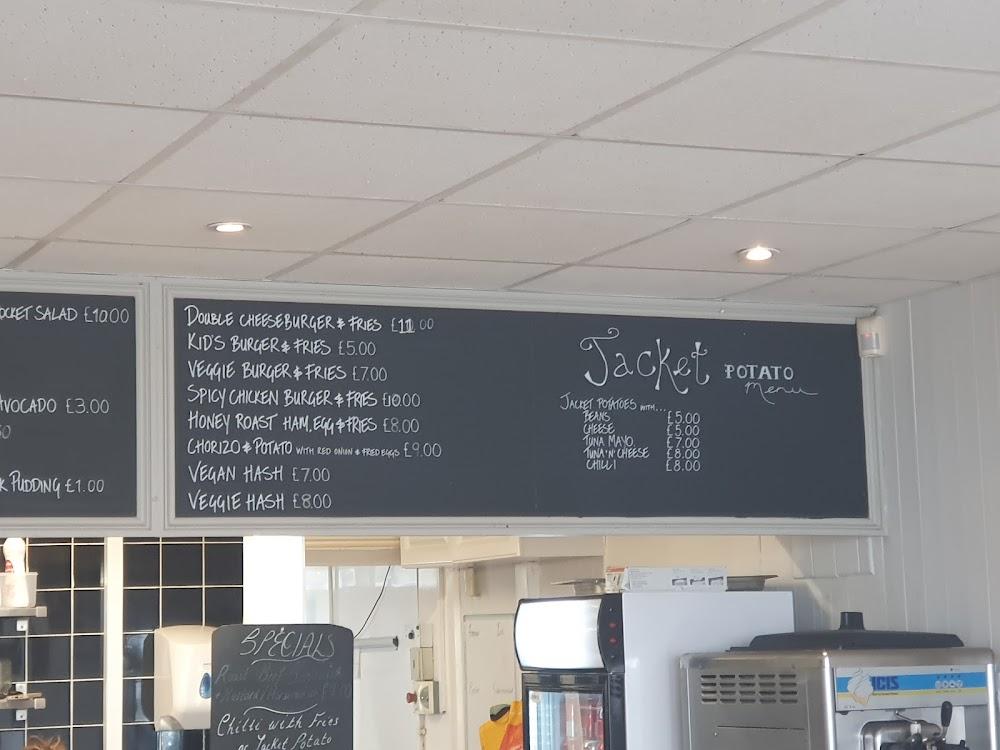 OCKET SALAD £10.00
AVOCADO £3.00
K PUDDING £1.00
DOUBLE CHEESEBURGER & FRIES £11.00
KID'S BURGER & FRIES £5.00
VEGGIE BURGER & FRIES £7.00
SPICY CHICKEN BURGER & FRIES £10.00
HONEY ROAST HAM, EGG & FRIES £8.00
CHORIZO & POTATO WITH RED ONION & FRIED EGGS £9.00
VEGAN HASH £7.00
VEGGIE HASH £8.00
Jacket POTATO
Menu
JACKET POTATOES WITH...
BEANS £5.00
CHEESE £5.00
TUNA MAYO £7.00
TUNA 'N' CHEESE £8.00
CHILLI £8.00
SPECIALS
Roast Beef
Chilli with Fries
or Jacket Potato